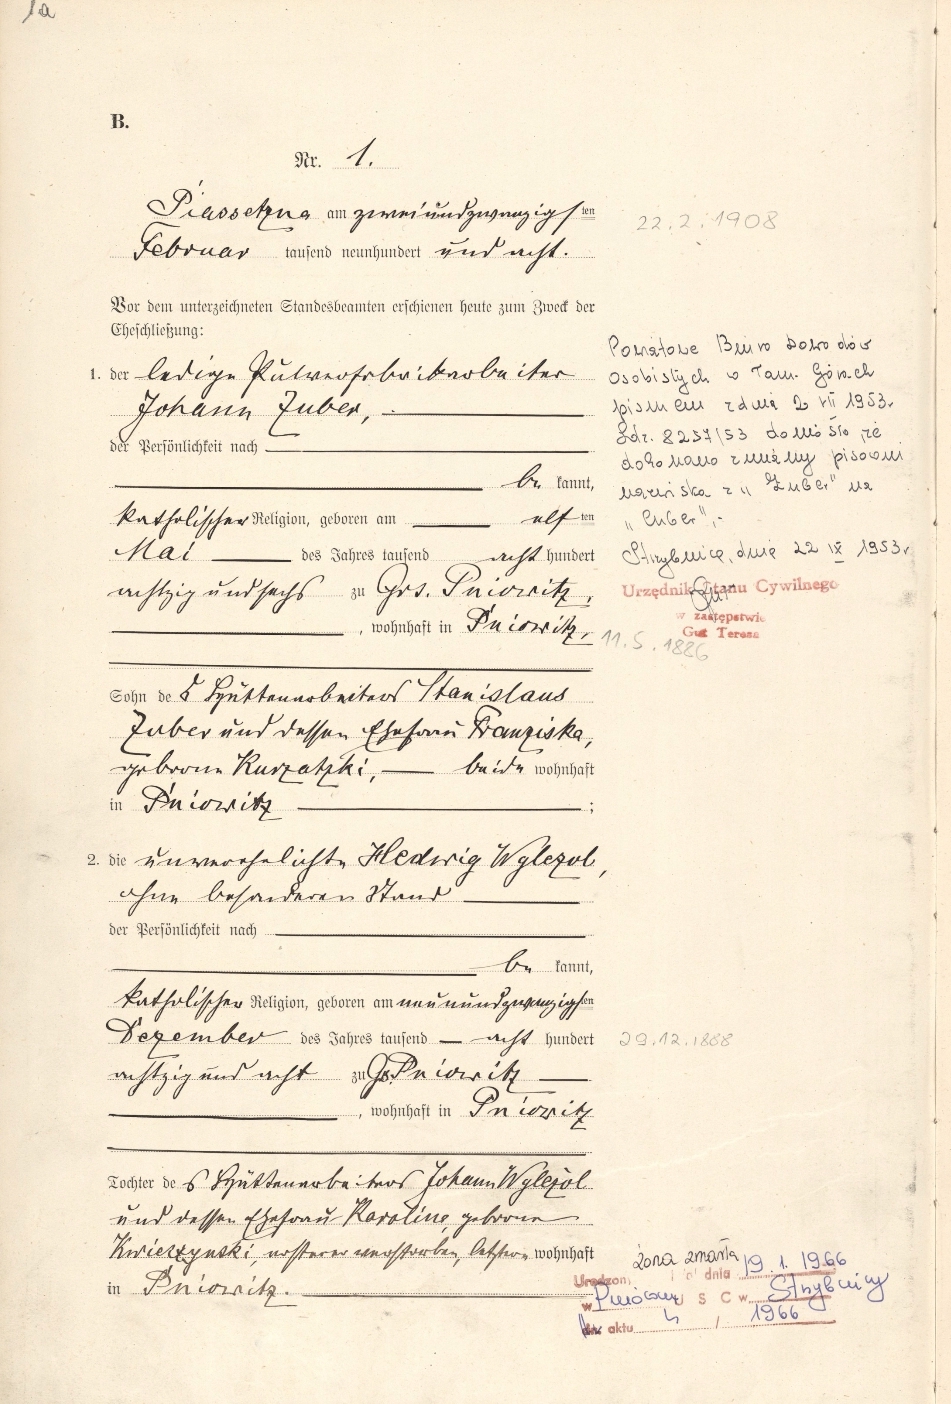 1a
B.
Nr. 1.
Piassetzna am zweiundzwanzigsten
Februar tausend neunhundert und acht.
22.2.1908
Vor dem unterzeichneten Standesbeamten erschienen heute zum Zweck der
Eheschließung:
1. der ledige Pulverfabrikarbeiter
Johann Zuber,
der Persönlichkeit nach
be kannt,
katholischer Religion, geboren am elften
Mai des Jahres tausend acht hundert
achtzig und sechs zu Grs. Pniowitz,
, wohnhaft in Pniowitz,
Powiatowe Biuro Dowodów
Osobistych w Tarn. Górach
pismem z dnia 2 VII 1953.
Ldz. 8257/53 doniosło że
dokonano zmiany pisowni
nazwiska z „Zuber" na
„Cuber",-
Strzybnica, dnia 22 IX 1953r.
Urzędnik Stanu Cywilnego
w zastępstwie
Gut Teresa
11.5.1886
Sohn des Hüttenarbeiters Stanislaus
Zuber und dessen Ehefrau Franziska,
geborene Kurzatzki, beide wohnhaft
in Pniowitz ;
2. die unverehelichte Hedwig Wylezol,
ohne besonderen Stand
der Persönlichkeit nach
be kannt,
katholischer Religion, geboren am neunundzwanzigsten
Dezember des Jahres tausend acht hundert
achtzig und acht zu Grs. Pniowitz
, wohnhaft in Pniowitz
29.12.1888
Tochter des Hüttenarbeiters Johann Wylezol
und dessen Ehefrau Karoline, geborene
Kwietzynski, ersterer verstorben, letztere wohnhaft
in Pniowitz.
Żona zmarła
dnia 19.1.1966
w Pniowcu U S C w Strzybnicy
Nr. aktu 4 / 1966